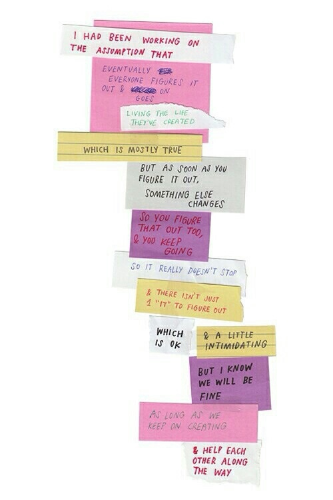 I HAD BEEN WORKING ON
THE ASSUMPTION THAT
EVENTUALLY
EVERYONE FIGURES IT
OUT & ON
GOES
LIVING THE LIFE
THEY'VE CREATED
WHICH IS MOSTLY TRUE
BUT AS SOON AS YOU
FIGURE IT OUT,
SOMETHING ELSE
CHANGES
SO YOU FIGURE
THAT OUT TOO,
& YOU KEEP
GOING
SO IT REALLY DOESN'T STOP
& THERE ISN'T JUST
1 "IT" TO FIGURE OUT
WHICH
IS OK
& A LITTLE
INTIMIDATING
BUT I KNOW
WE WILL BE
FINE
AS LONG AS WE
KEEP ON CREATING
& HELP EACH
OTHER ALONG
THE WAY